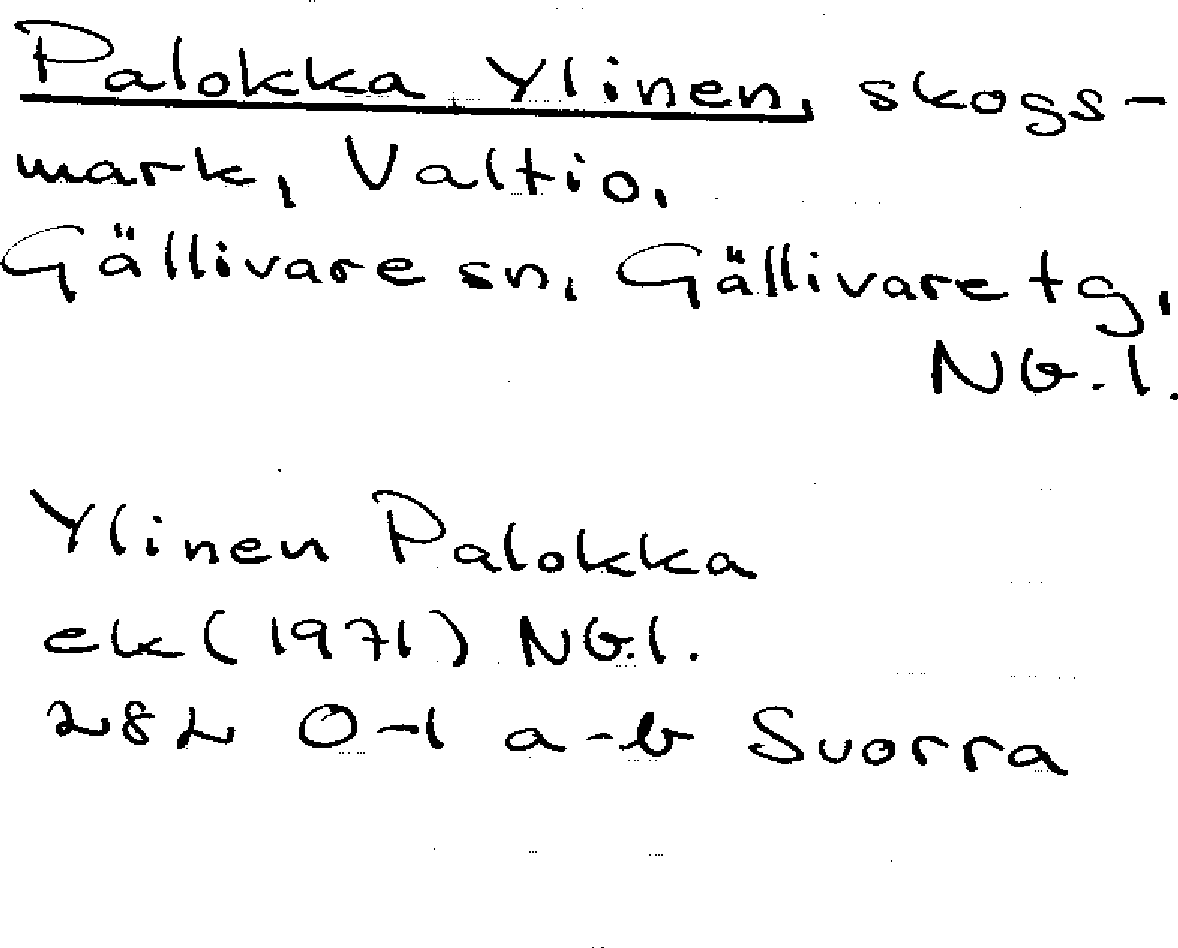 Palokka Ylinen, skogs-
mark, Valtio,
Gällivare sn, Gällivare tg,
Nb.l.
Ylinen Palokka
ek (1971) Nb.l.
28L 0-1 a-b Suorra